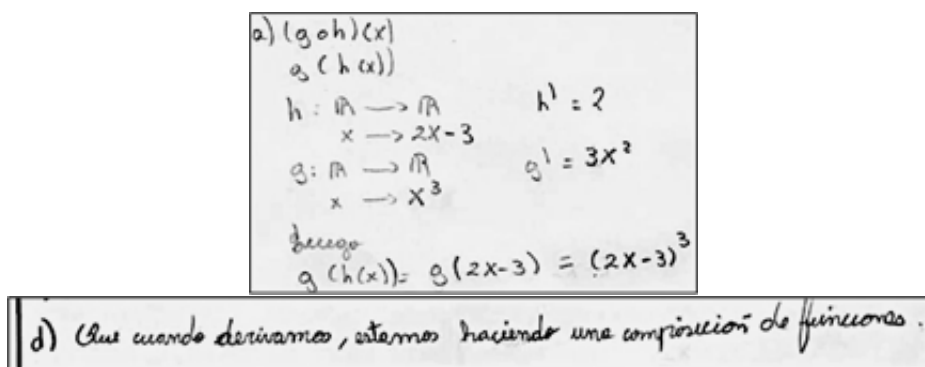 a) (g o h)(x)
g(h(x))
h: ℝ → ℝ
x → 2x-3
h' = 2
g: ℝ → ℝ
x → x³
g' = 3x²
Luego
g(h(x)) = g(2x-3) = (2x-3)³
d) Que cuando derivamos, estamos haciendo una composición de funciones.